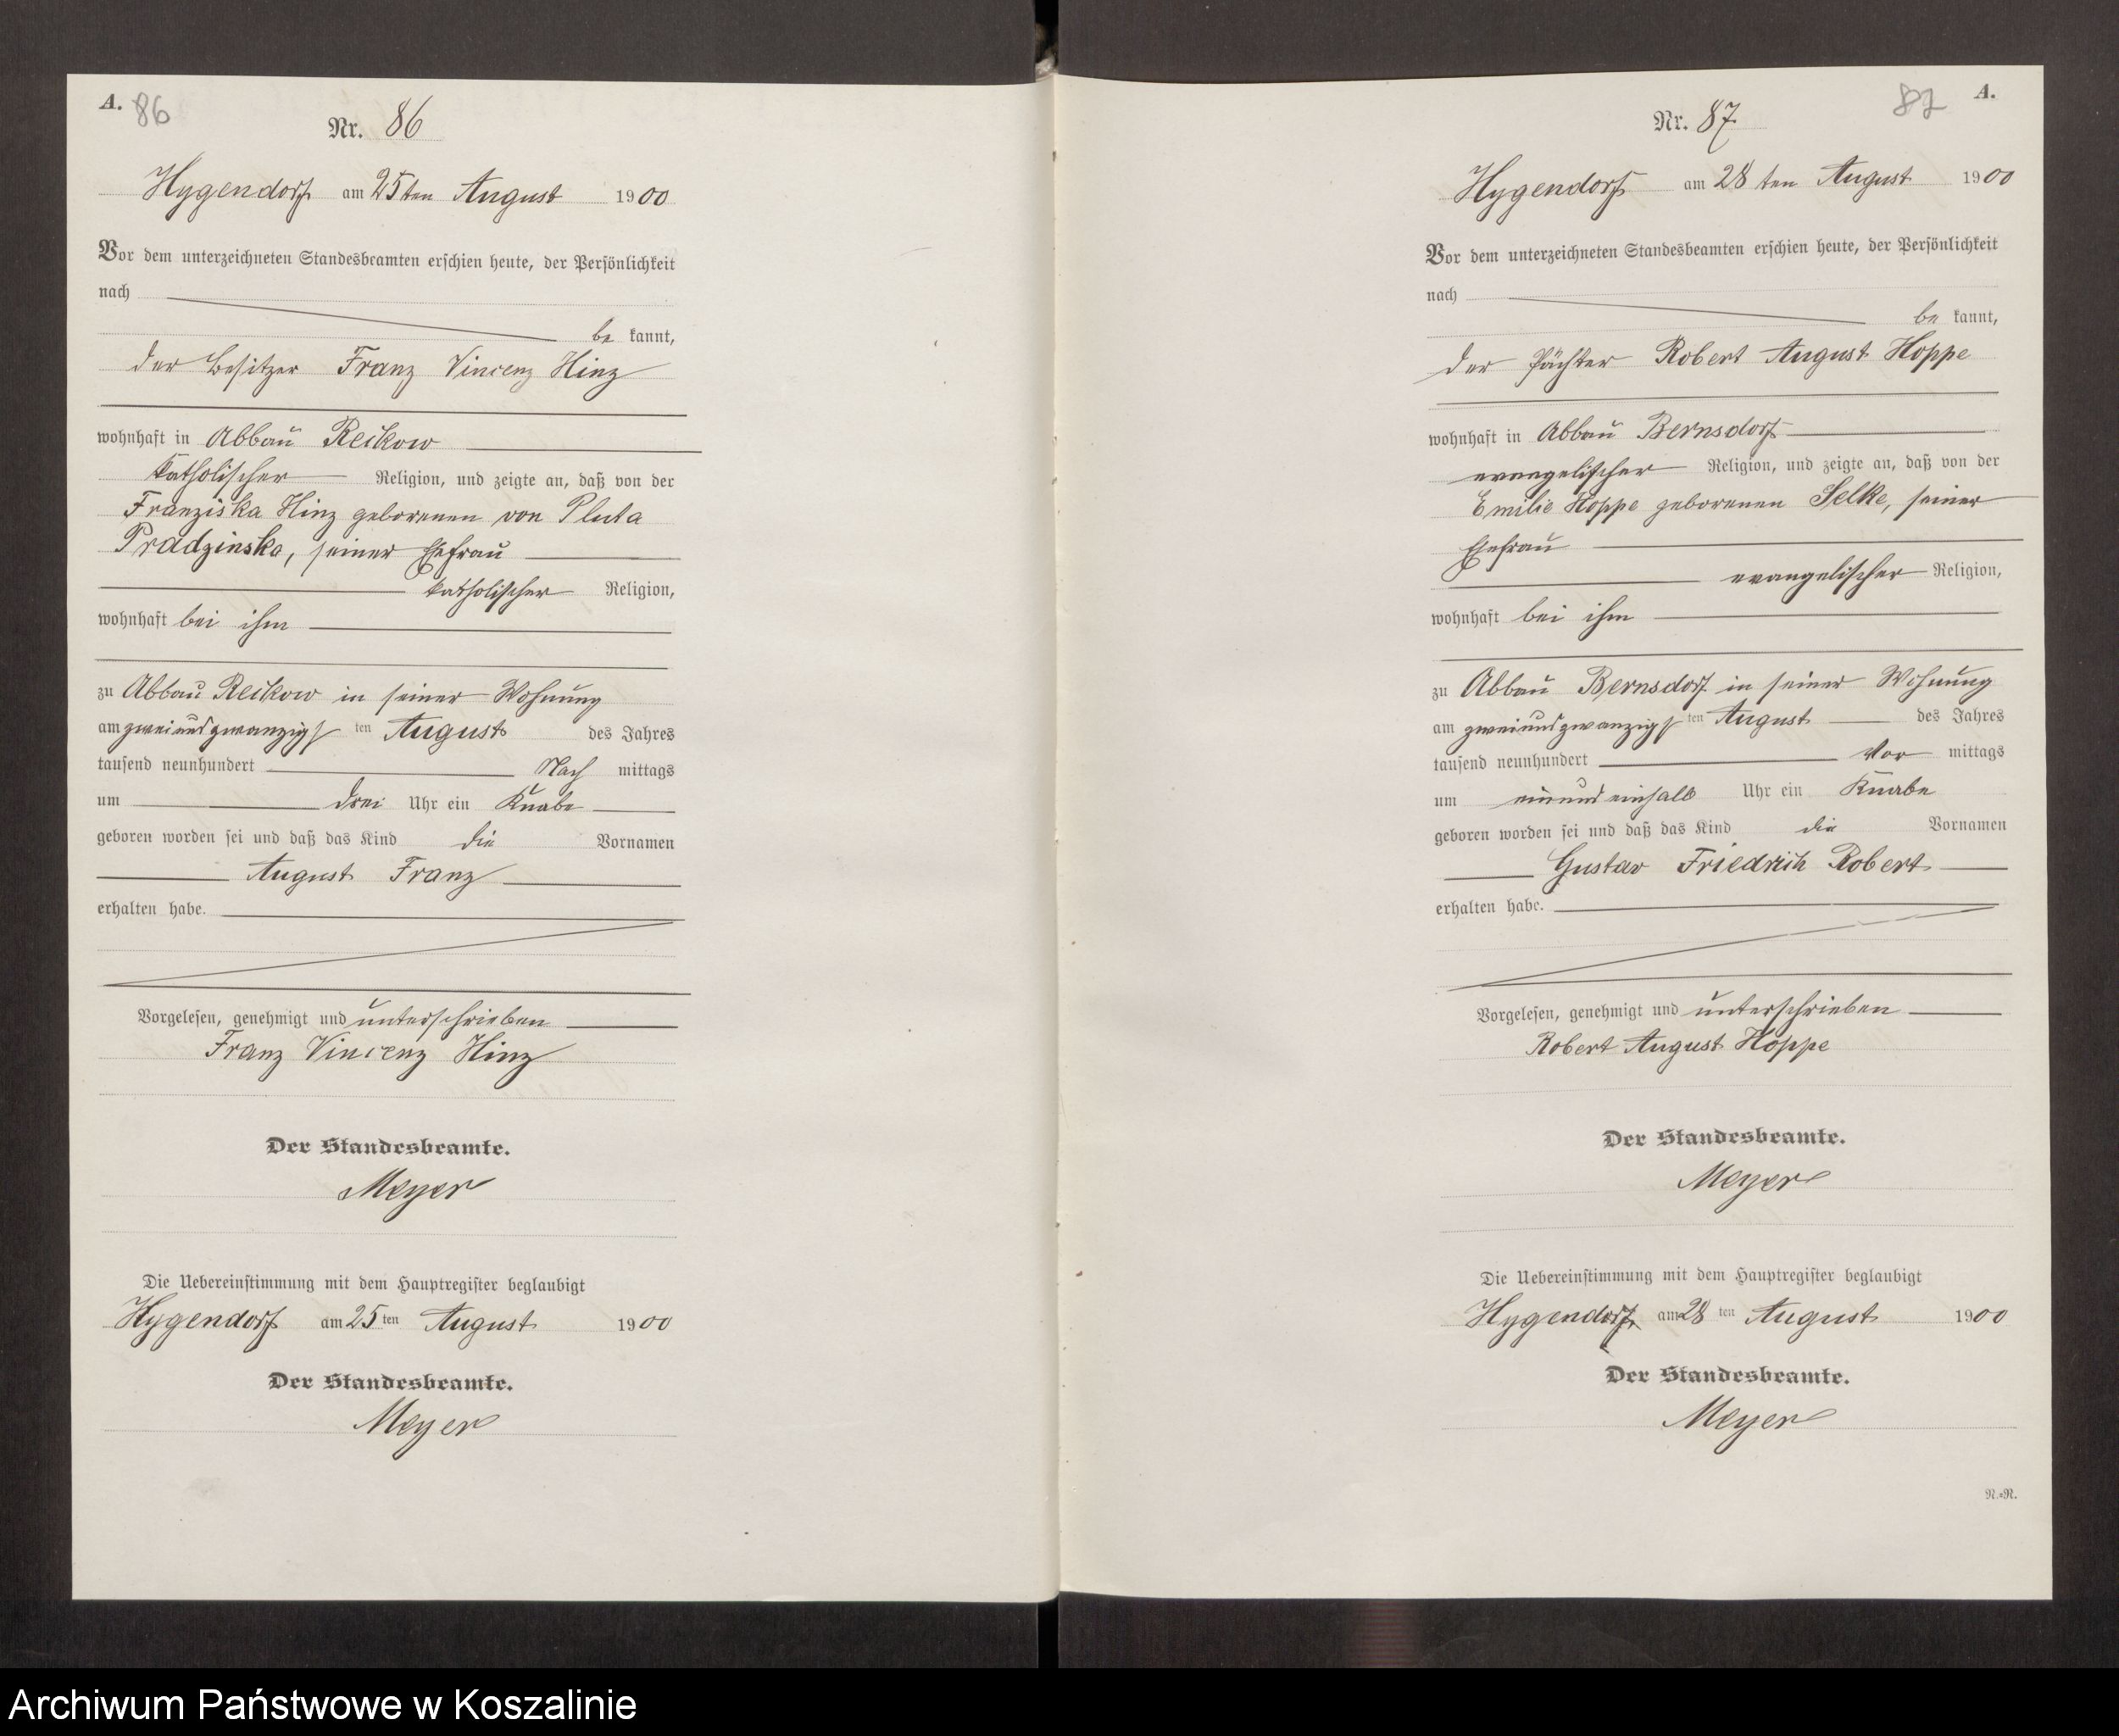 A. 86
Nr. 86
Hygendorf am 25ten August 1900
Vor dem unterzeichneten Standesbeamten erschien heute, der Persönlichkeit
nach
be kannt,
der Besitzer Franz Vincenz Hinz
wohnhaft in Abbau Reikow
katholischer Religion, und zeigte an, daß von der
Franziska Hinz geborenen von Pluta
Pradzinska, seiner Ehefrau
katholischer Religion,
wohnhaft bei ihm
zu Abbau Reikow in seiner Wohnung
am zweiundzwanzigs ten August des Jahres
tausend neunhundert Nach mittags
um drei Uhr ein Knabe
geboren worden sei und daß das Kind die Vornamen
August Franz
erhalten habe.
Vorgelesen, genehmigt und unterschrieben
Franz Vincenz Hinz
Der Standesbeamte.
Meyer
Die Uebereinstimmung mit dem Hauptregister beglaubigt
Hygendorf am 25 ten August 1900
Der Standesbeamte.
Meyer
87 A.
Nr. 87
Hygendorf am 28 ten August 1900
Vor dem unterzeichneten Standesbeamten erschien heute, der Persönlichkeit
nach
be kannt,
der Pächter Robert August Hoppe
wohnhaft in Abbau Bernsdorf
evangelischer Religion, und zeigte an, daß von der
Emilie Hoppe geborenen Selke, seiner
Ehefrau
evangelischer Religion,
wohnhaft bei ihm
zu Abbau Bernsdorf in seiner Wohnung
am zweiundzwanzigs ten August des Jahres
tausend neunhundert Vor mittags
um einundeinhalb Uhr ein Knabe
geboren worden sei und daß das Kind die Vornamen
Gustav Friedrich Robert
erhalten habe.
Vorgelesen, genehmigt und unterschrieben
Robert August Hoppe
Der Standesbeamte.
Meyer
Die Uebereinstimmung mit dem Hauptregister beglaubigt
Hygendorf am 28 ten August 1900
Der Standesbeamte.
Meyer
N.=N.
Archiwum Państwowe w Koszalinie